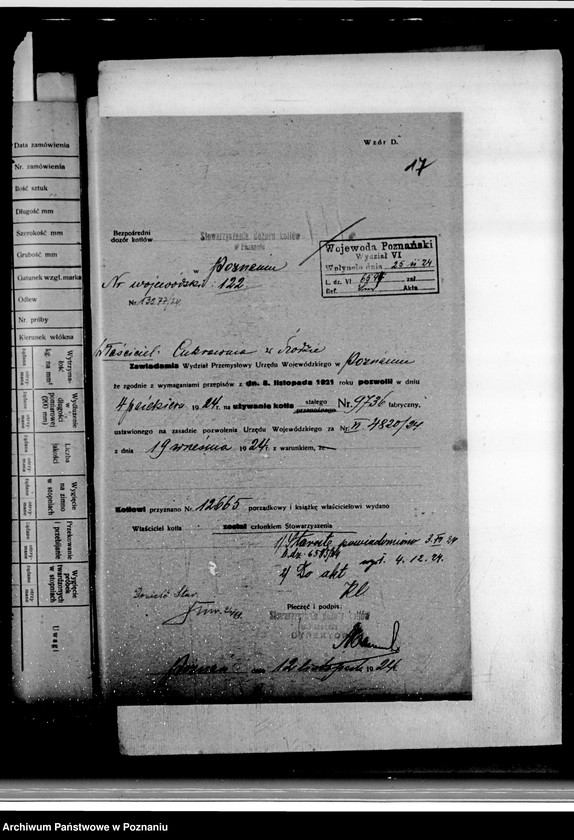 Wzór D.
17
Bezpośredni
dozór kotłów
Stowarzyszenie dozoru kotłów
w Poznaniu
w Poznaniu
Nr wojewódzki: 122
Nr. 13277/24
Wojewoda Poznański
Wydział VI
Wpłynęło dnia 25 11 24
L. dz. VI zał
Ref. Akta
Właściciel: Cukrownia w Środzie
Zawiadamia Wydział Przemysłowy Urzędu Wojewódzkiego w Poznaniu
że zgodnie z wymaganiami przepisów z dn. 8. listopada 1921 roku pozwolił w dniu
4 październ 1924 r. na używanie kotła stałego przenośnego Nr. 9736 fabryczny,
ustawionego na zasadzie pozwolenia Urzędu Wojewódzkiego za Nr. VI 4820/24
z dnia 19 września 1924 r. z warunkiem, że
Kotłowi przyznano Nr. 12665 porządkowy i książkę właścicielowi wydano
Właściciel kotła został członkiem Stowarzyszenia
1) Starostę powiadomiono 3.XII 24
L.dz. 6585/24 wysł. 4.12.24.
2) Do akt
Pieczęć i podpis:
Stowarzyszenie dozoru kotłów
w Poznaniu
DYREKTOR
Poznań dnia 12 listopada 1924
Data zamówienia
Nr. zamówienia
Ilość sztuk
Długość mm
Szerokość mm
Grubość mm
Gatunek wzgl. marka
Odlew
Nr. próby
Kierunek włókna
Wytrzymałość
kg. na mm²
żądana
otrzymana
Wydłużenie
w
długości
pomiarowej
(200 mm)
żądane
otrzymane
Liczba
jakości
żądana
otrzymana
Wygięcie
na zimno
w stopniach
żądane
otrzymane
Przekuwanie
i przebijanie
żądane
otrzymane
Wygięcie
próbek
twardzonych
w stopniach
żądane
otrzymane
Uwagi
Archiwum Państwowe w Poznaniu